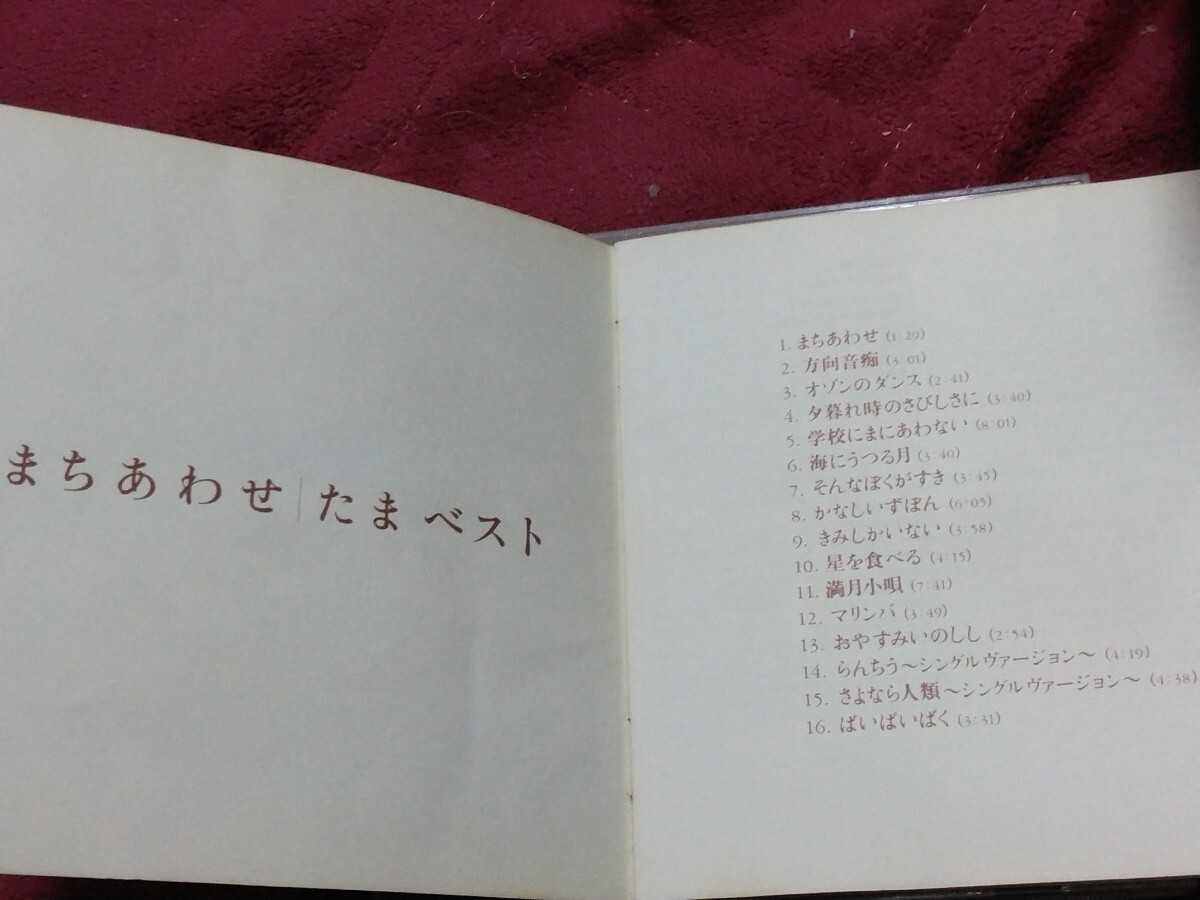 まちあわせ｜たま ベスト
1. まちあわせ (1:29)
2. 方向音痴 (3:01)
3. オゾンのダンス (2:41)
4. 夕暮れ時のさびしさに (3:40)
5. 学校にまにあわない (8:01)
6. 海にうつる月 (3:40)
7. そんなぼくがすき (3:45)
8. かなしいずぼん (6:05)
9. きみしかいない (3:58)
10. 星を食べる (4:15)
11. 満月小唄 (7:41)
12. マリンバ (3:49)
13. おやすみいのしし (2:54)
14. らんちう〜シングルヴァージョン〜 (4:19)
15. さよなら人類〜シングルヴァージョン〜 (4:38)
16. ばいばいばく (3:31)